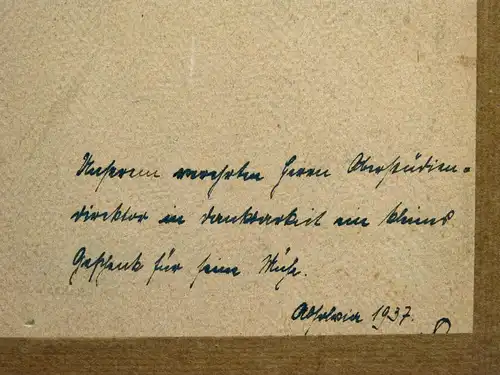 Unserem verehrten Herrn Oberstudien-
direktor in Dankbarkeit ein kleines
Geschenk für seine Mühe.
Absolvia 1937.